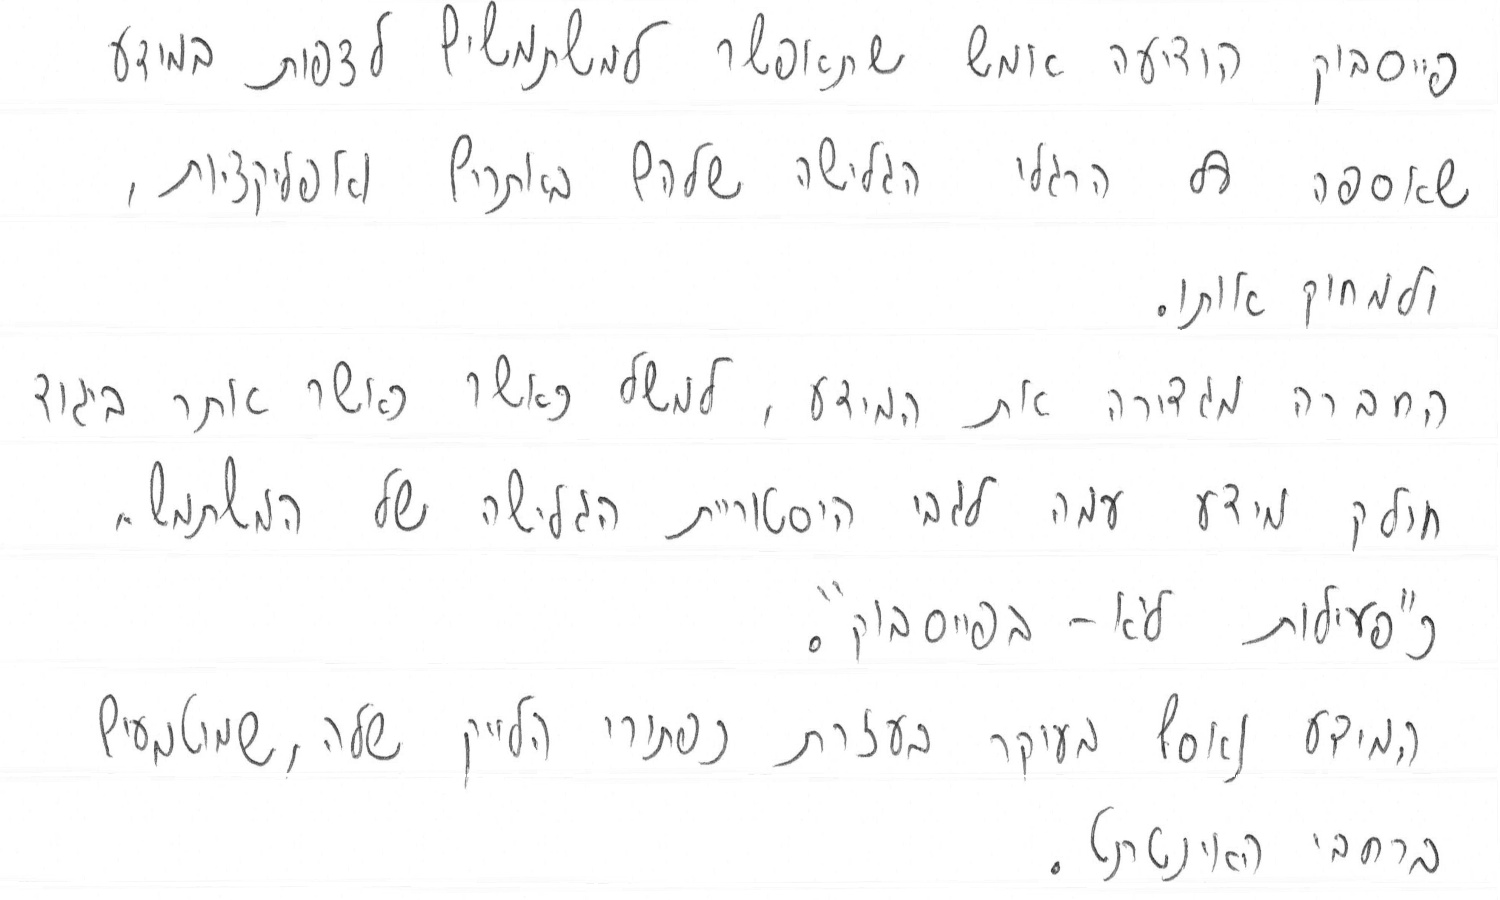 פייסבוק הודיעה אמש שתאפשר למשתמשים לצפות במידע
שאספה על הרגלי הגלישה שלהם באתרים ואפליקציות,
ולמחוק אותו.
החברה מגדירה את המידע, למשל כאשר כאשר אתר ביגוד
חולק מידע עמה לגבי היסטוריית הגלישה של המשתמש.
כ"פעילות לא - בפייסבוק".
המידע נאסף בעיקר בעזרת כפתורי הלייק שלה, שמוטמעים
ברחבי